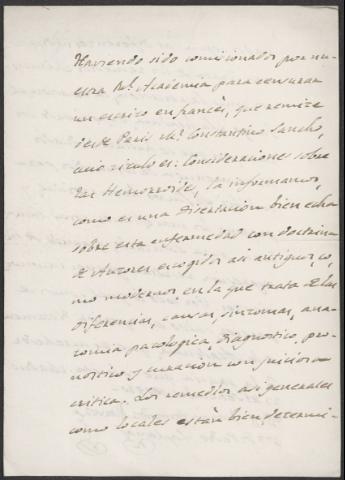 Haviendo sido comisionados por nu-
estra Rl. Academia para censurar
un escrito en francés, que remite
desde Paris Dn. Constantino Sancho,
cuio titulo es: Consideraciones sobre
las Hemorroides, la informamos,
como es una Disertacion bien echa
sobre esta enfermedad con doctrina
de Autores escogidos asi antiguos, co-
mo modernos en la que trata de las
diferencias, causas, sintomas, ana-
tomia patologica, diagnostico, pro-
nostico y curacion con juiciosa
critica. Los remedios asi generales
como locales están bien determi-